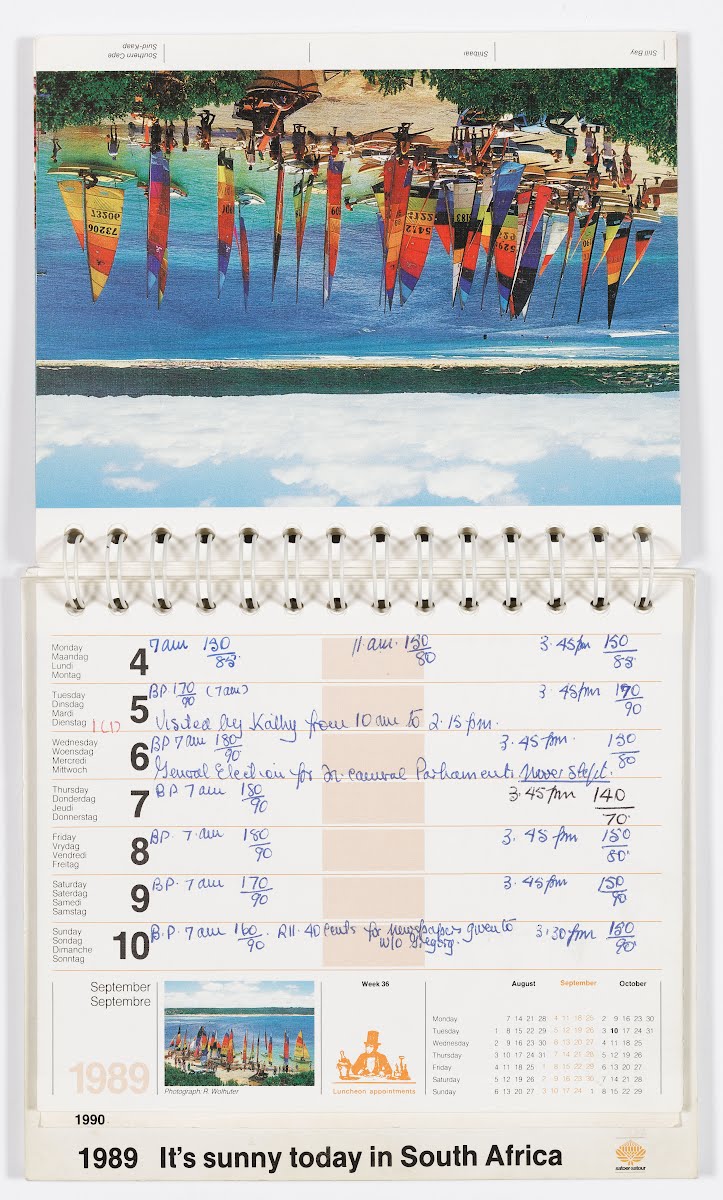 Southern Cape
Suid-Kaap
Stilbaai
Still Bay
73206
37206
Monday
Maandag
Lundi
Montag
4
7am 150/85
11 am. 150/80
3.45pm 150/85
Tuesday
Dinsdag
Mardi
Dienstag
5
BP 170/90 (7am)
3.45pm 170/90
Visited by Kathy from 10 am to 2.15 pm.
Wednesday
Woensdag
Mercredi
Mittwoch
6
BP 7am 180/90
3.45 pm. 150/80
General Election for Tri-cameral Parliament. Never slept.
Thursday
Donderdag
Jeudi
Donnerstag
7
BP 7am 180/90
3.45pm 140/70
Friday
Vrydag
Vendredi
Freitag
8
BP. 7am 180/90
3.45 pm 150/80
Saturday
Saterdag
Samedi
Samstag
9
BP. 7am 170/90
3.45pm 150/90
Sunday
Sondag
Dimanche
Sonntag
10
B.P. 7am 160/90. R11.40 cents for newspapers given to
W/O Gregory.
3.30pm 150/90
September
Septembre
1989
Photograph: R. Wolhuter
Week 36
Luncheon appointments
August September October
Monday 7 14 21 28 4 11 18 25 2 9 16 23 30
Tuesday 1 8 15 22 29 5 12 19 26 3 10 17 24 31
Wednesday 2 9 16 23 30 6 13 20 27 4 11 18 25
Thursday 3 10 17 24 31 7 14 21 28 5 12 19 26
Friday 4 11 18 25 1 8 15 22 29 6 13 20 27
Saturday 5 12 19 26 2 9 16 23 30 7 14 21 28
Sunday 6 13 20 27 3 10 17 24 1 8 15 22 29
1990
1989 It's sunny today in South Africa
satoer·satour